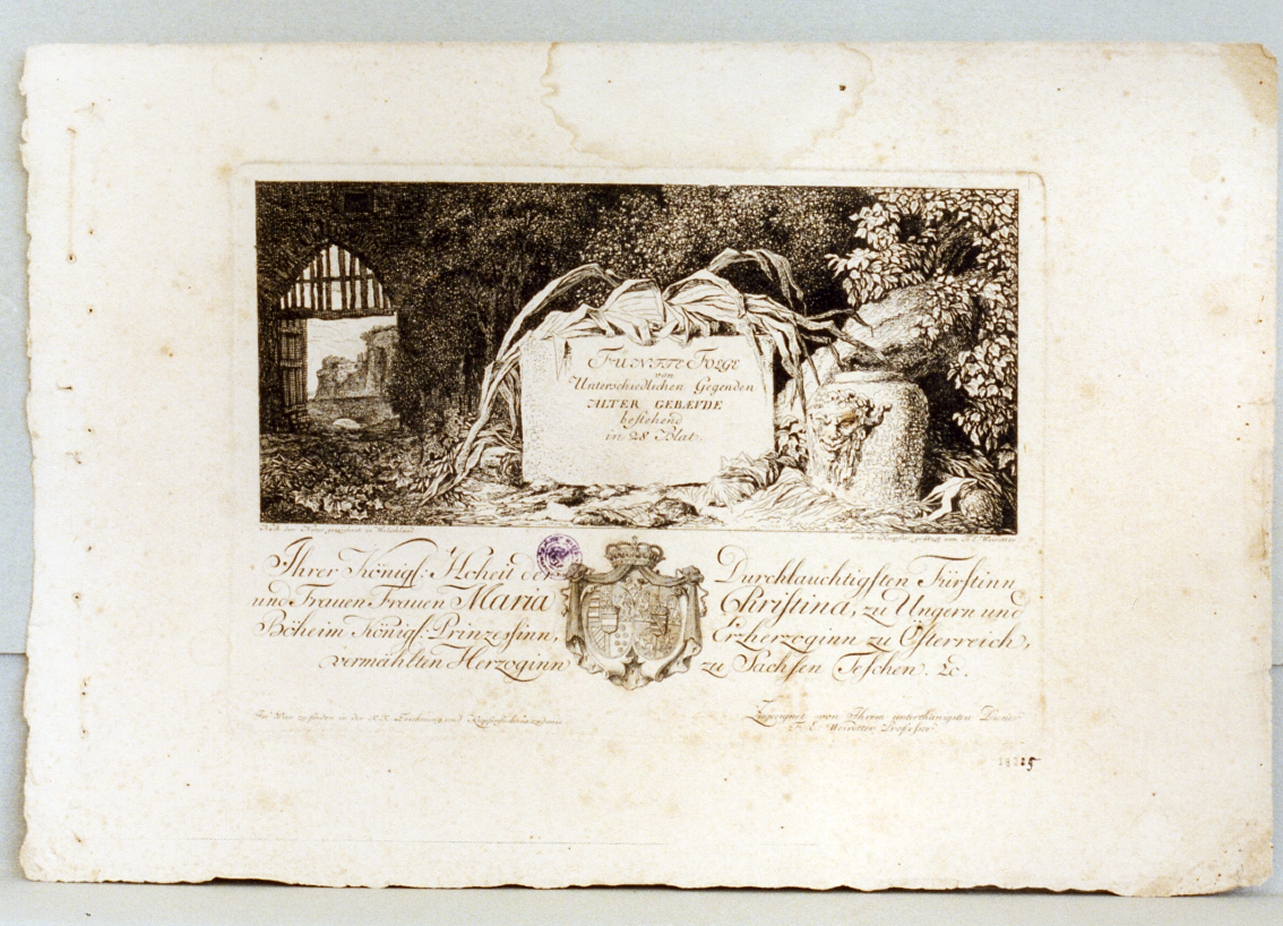 FÜNFTE FOLGE
von
Unterschiedlichen Gegenden
ALTER GEBÆUDE
bestehend
in 28 Blat.
Nach der Natur gezeichnet in Welschland
und in Kupfer geätzt von F. E. Weirotter
Ihrer Königl: Hoheit der Durchlauchtigsten Fürstinn
und Frauen Frauen Maria Christina, zu Ungern und
Böheim Königl: Prinzessinn, Erzherzoginn zu Österreich,
vermählten Herzoginn zu Sachsen Teschen. &c.
In Wien zu finden in der K. K. Zeichnung und Kupferstich academie
Zugeeignet von Ihrem unterthänigsten Diener
F. E. Weirotter Professor